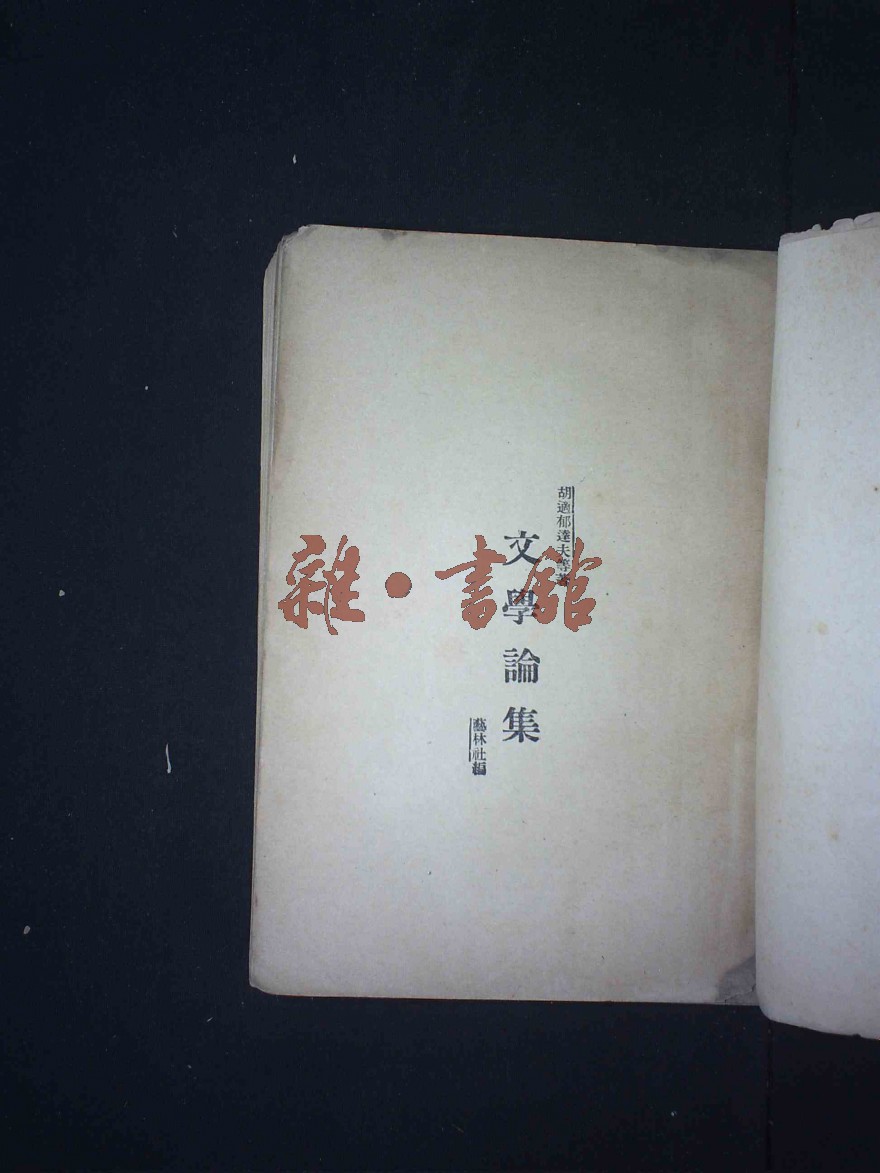 胡適郁達夫等著
文學論集
藝林社編
雜·書館